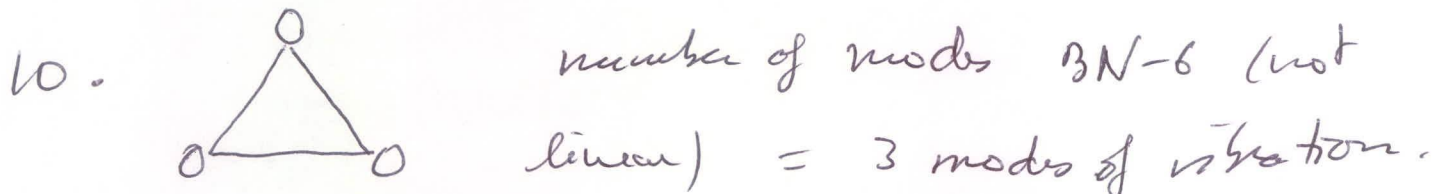 10. number of modes 3N-6 (not
linear) = 3 modes of vibration.